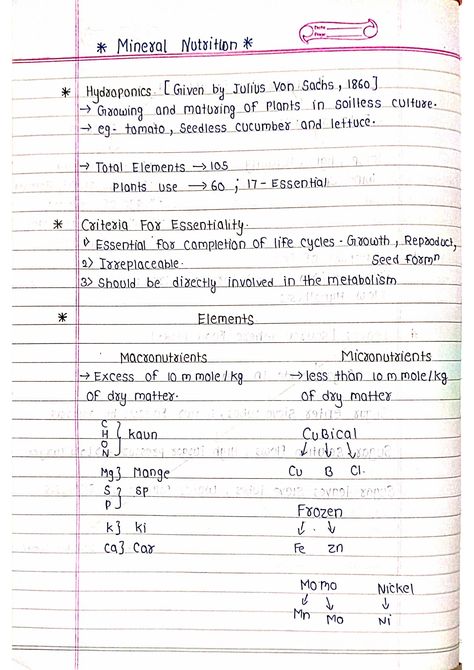 * Mineral Nutrition *
Date
Page
* Hydroponics [Given by Julius Von Sachs, 1860]
→ Growing and maturing of plants in soilless culture.
→ eg- tomato, Seedless cucumber and lettuce.
→ Total Elements → 105
Plants use → 60 ; 17 - Essential
* Criteria For Essentiality.
1) Essential for completion of life cycles. Growth, Reproduct,
2) Irreplaceable. Seed formⁿ
3) Should be directly involved in the metabolism
* Elements
Macronutrients Micronutrients
→ Excess of 10 m mole/kg → less than 10 m mole/kg
of dry matter. of dry matter
C
H
O
N } kaun CuBical
↓ ↓ ↓
Mg} Mange Cu B Cl.
S
P } sp
Frozen
k} ki ↓ ↓
ca} Car Fe Zn
Momo Nickel
↓ ↓ ↓
Mn Mo Ni